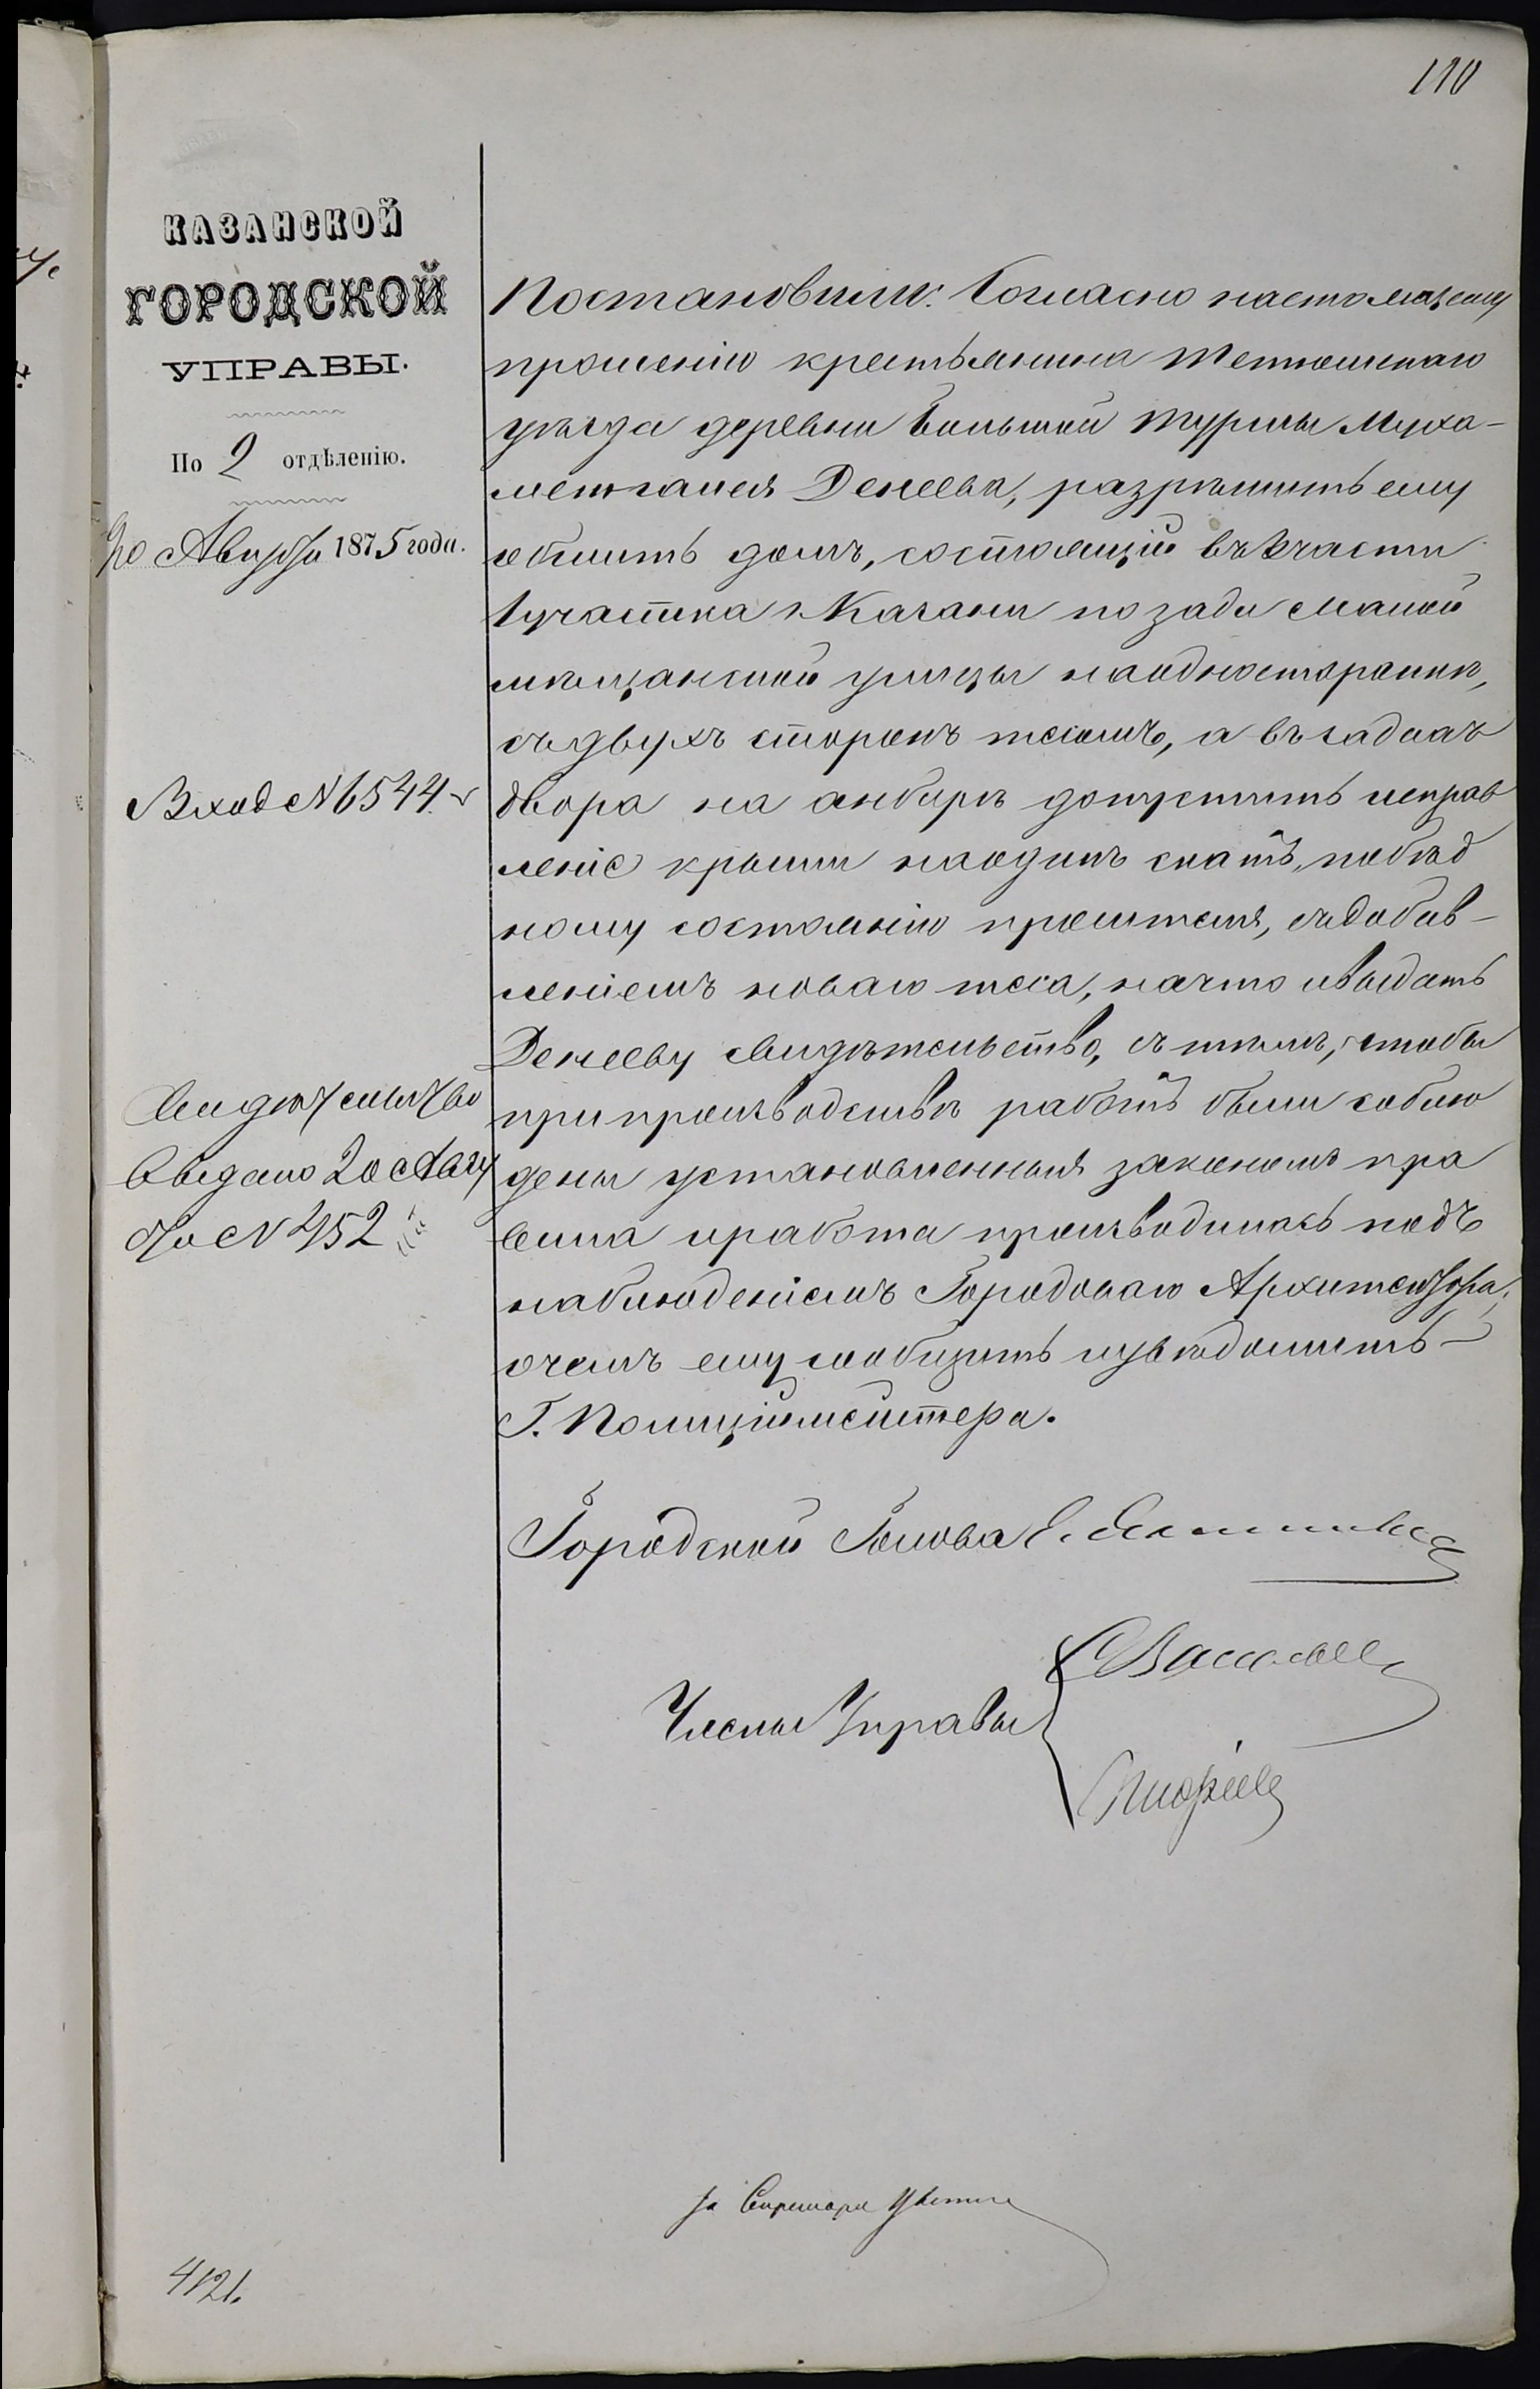 110
КАЗАНСКОЙ
ГОРОДСКОЙ
УПРАВЫ.
По 2 отдѣленію.
20 Августа 1875 года.
Вход № 6544
Свидѣтельство
выдано 20 Авгу
ста № 452
Постановили: Согласно настоящему
прошенію крестьянина Тетюшскаго
уѣзда деревни Большой Турмы Муха-
метгалея Денеева, разрѣшить ему
обшить домъ, состоящій въ части
1 участка г. Казани позади малой
мѣщанской улицы на одно строеніе,
съ двухъ сторонъ тесомъ, а въ задахъ
двора на анбарѣ допустить исправ
леніе крыши на одинъ скатъ, по бѣд
ному состоянію просителя, съ добав-
леніемъ новаго теса, на что и выдать
Денееву свидѣтельство, съ тѣмъ, чтобы
при производствѣ работъ были соблю
дены установленныя закономъ пра
вила и работа производилась подъ
наблюденіемъ Городоваго Архитектора;
о чемъ ему сообщить и увѣдомить
Г. Полиціймейстера.
Городской Голова
Члены Управы
За Секретаря
4121.